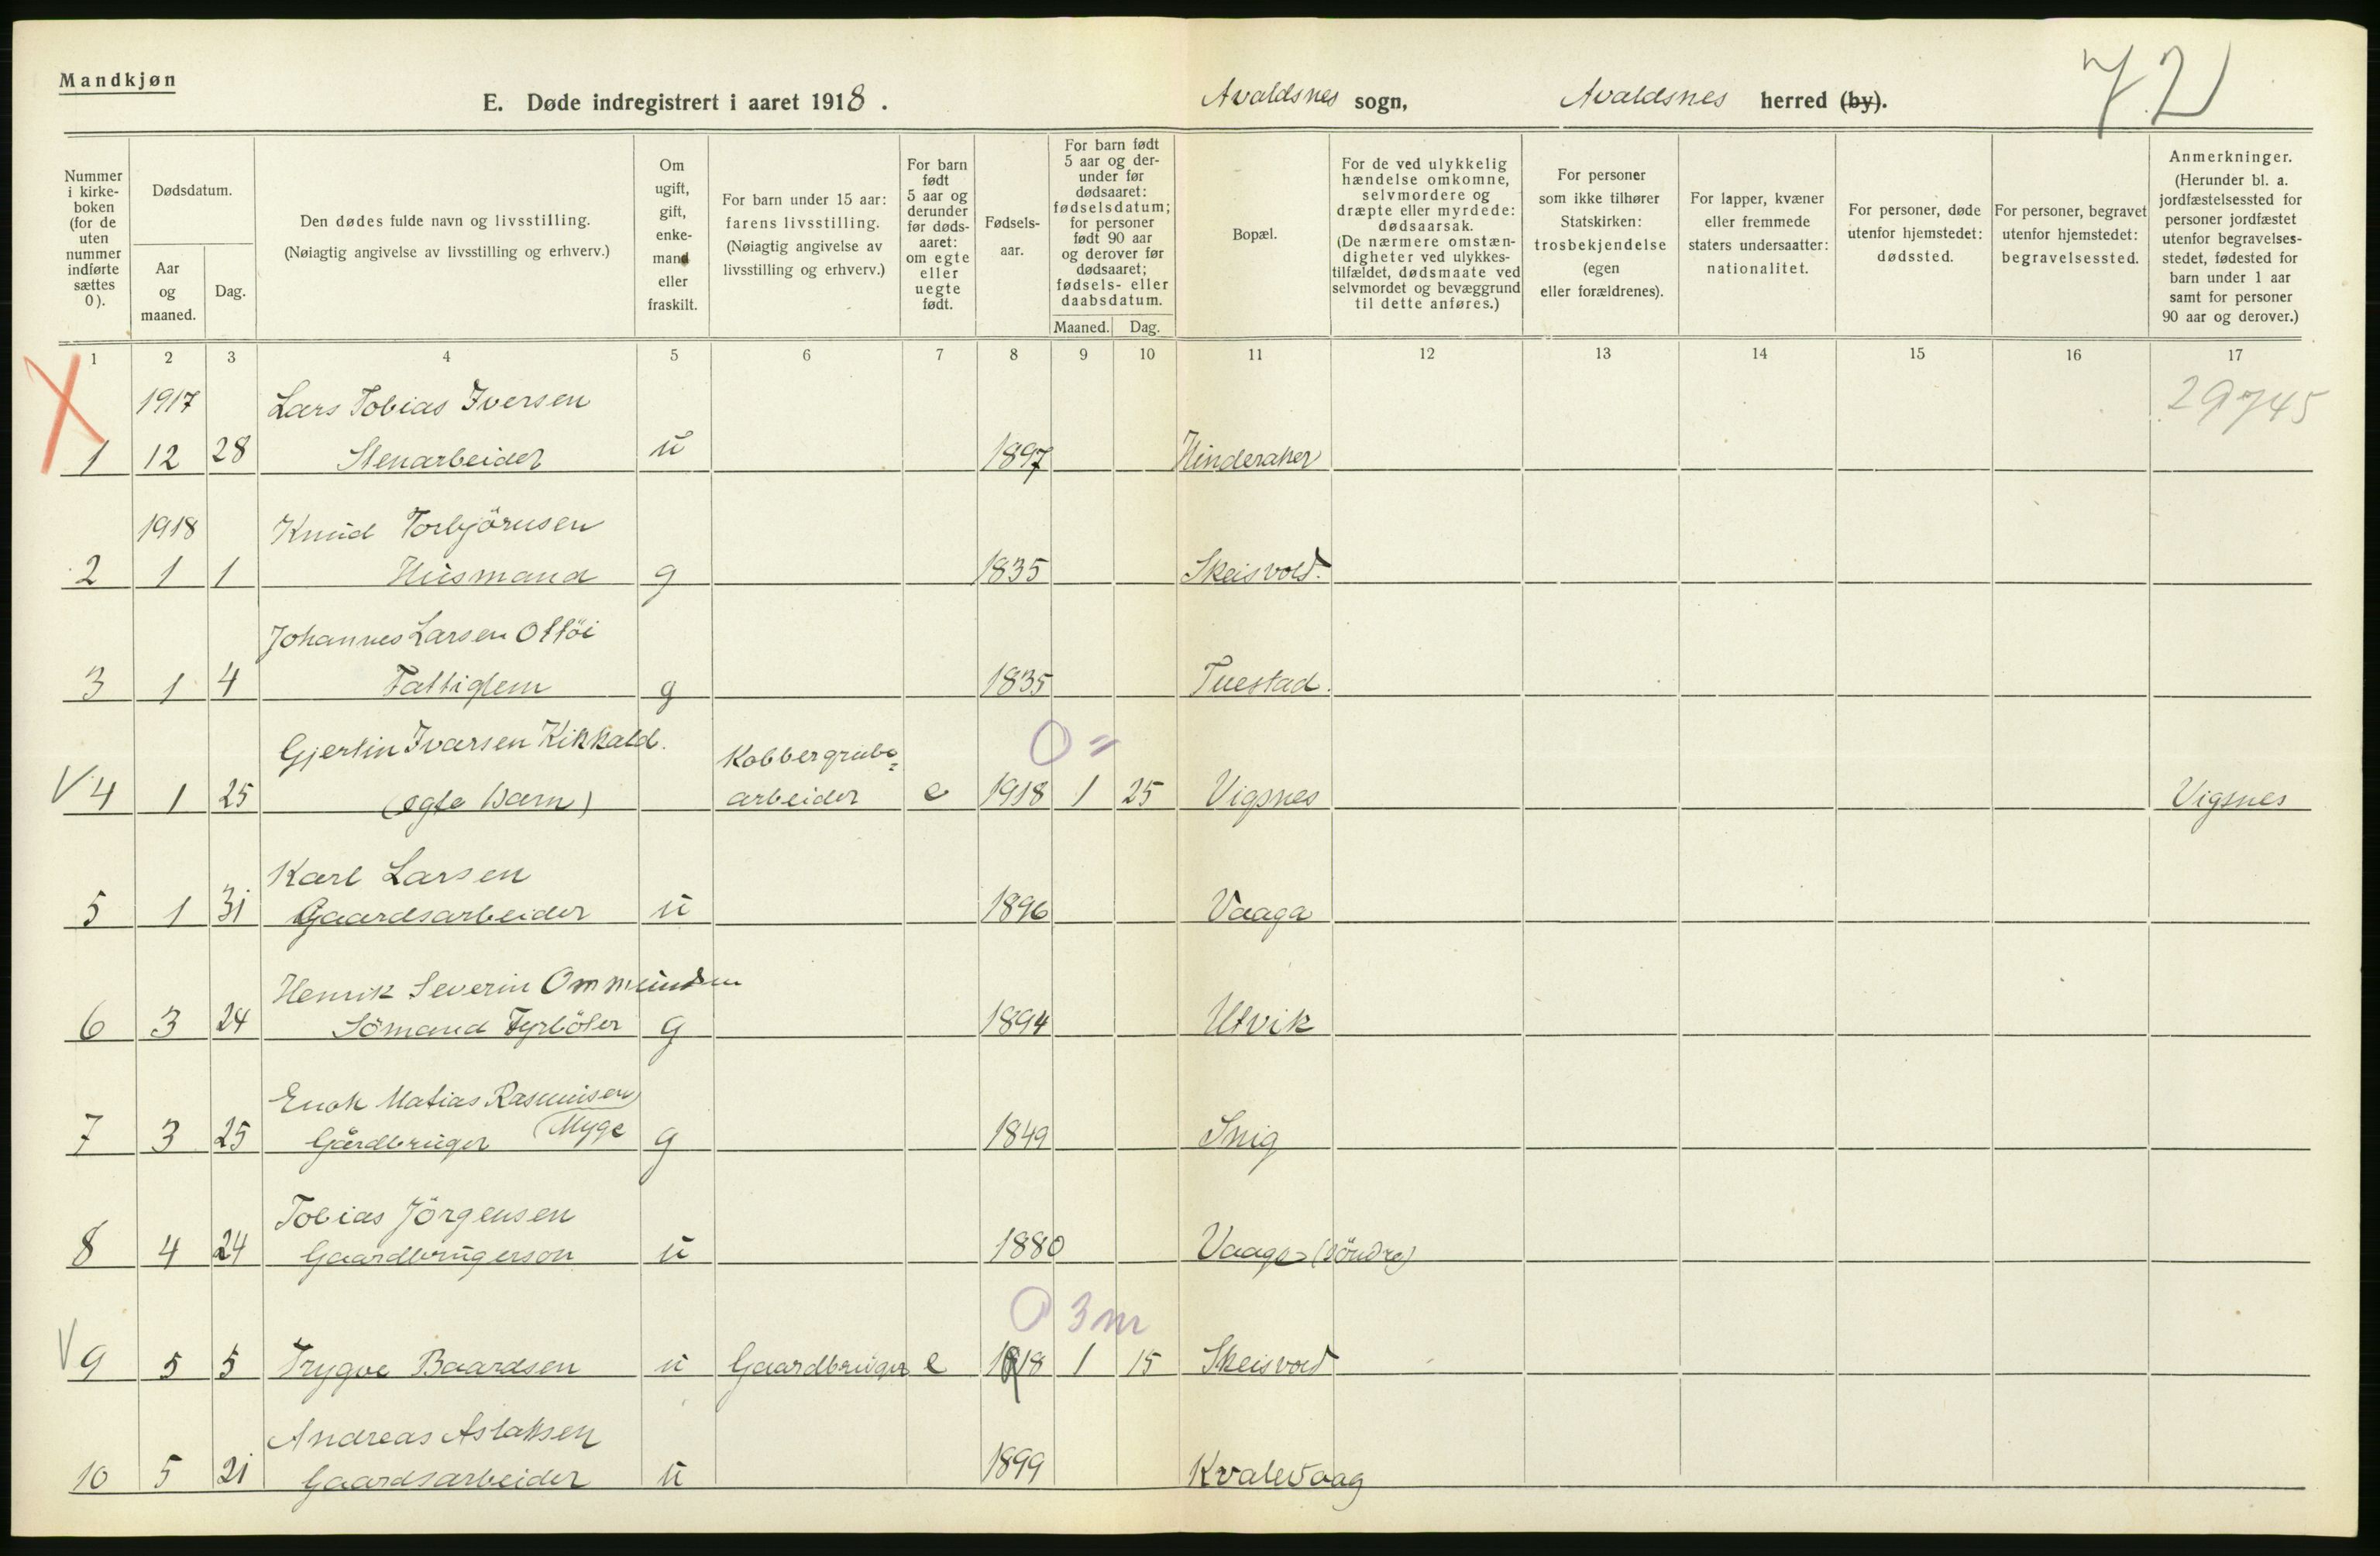 Mandkjøn
E. Døde indregistrert i aaret 1918.
Avaldsnes sogn, Avaldsnes herred (by).
72
Nummer i kirke-boken (for de uten nummer indførte sættes 0).
Dødsdatum.
Aar og maaned.
Dag.
Den dødes fulde navn og livsstilling.
(Nøiagtig angivelse av livsstilling og erhverv.)
Om ugift, gift, enke-mand eller fraskilt.
For barn under 15 aar: farens livsstilling.
(Nøiagtig angivelse av livsstilling og erhverv.)
For barn født 5 aar og derunder før døds-aaret: om egte eller uegte født.
Fødsels-aar.
For barn født 5 aar og der-under før dødsaaret: fødselsdatum; for personer født 90 aar og derover før dødsaaret; fødsels- eller daabsdatum.
Maaned. Dag.
Bopæl.
For de ved ulykkelig hændelse omkomne, selvmordere og dræpte eller myrdede: dødsaarsak.
(De nærmere omstæn-digheter ved ulykkes-tilfældet, dødsmaate ved selvmordet og bevæggrund til dette anføres.)
For personer som ikke tilhører Statskirken: trosbekjendelse (egen eller forældrenes).
For lapper, kvæner eller fremmede staters undersaatter: nationalitet.
For personer, døde utenfor hjemstedet: dødssted.
For personer, begravet utenfor hjemstedet: begravelsessted.
Anmerkninger.
(Herunder bl. a. jordfæstelsessted for personer jordfæstet utenfor begravelses-stedet, fødested for barn under 1 aar samt for personer 90 aar og derover.)
1 2 3 4 5 6 7 8 9 10 11 12 13 14 15 16 17
1917 Lars Tobias Iversen 29745
1 12 28 Stenarbeider u 1897 Hinderaker
1918 Knud Torbjörnsen
2 1 1 Husmand g 1835 Skeisvold.
Johannes Larsen Ottöi
3 1 4 Fattiglem g 1835 Tuestad.
Gjertin Iversen Kikkald. Kobbergrube= 0 =
V 4 1 25 (egte Barn) arbeider e 1918 1 25 Vigsnes Vigsnes
Karl Larsen
5 1 31 Gaardsarbeider u 1896 Vaaga
Henrik Severin Ommundsen
6 3 24 Sömand Fyrböter g 1894 Utvik
Enok Matias Rasmusen
7 3 25 Gårdbruger (Myge g 1849 Snig
Tobias Jörgensen
8 4 24 Gaardbrugerson u 1880 Vaage (söndre)
0 3 m
V 9 5 5 Trygve Baardsen u Gaardbruger e 1918 1 15 Skeisvold
Andreas Aslaksen
10 5 21 Gaardsarbeider u 1899 Kvalevaag